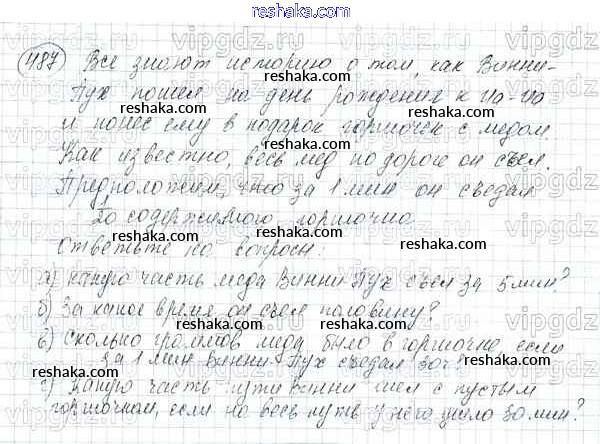 reshaka.com
487) Все знают историю о том, как Винни-
Пух пошел на день рождения к Иа-Иа
и понес ему в подарок горшочек с медом.
Как известно, весь мед по дороге он съел.
Предположим, что за 1 мин он съедал
1/20 содержимого горшочка
ответьте на вопросы:
а) какую часть меда Винни-Пух съел за 5 мин?
б) За какое время он съел половину?
в) сколько граммов меда было в горшочке если
за 1 мин Винни-Пух съедал 30г?
г) Какую часть пути Винни шел с пустым
горшочком, если на весь путь у него ушло 30 мин?
reshaka.com